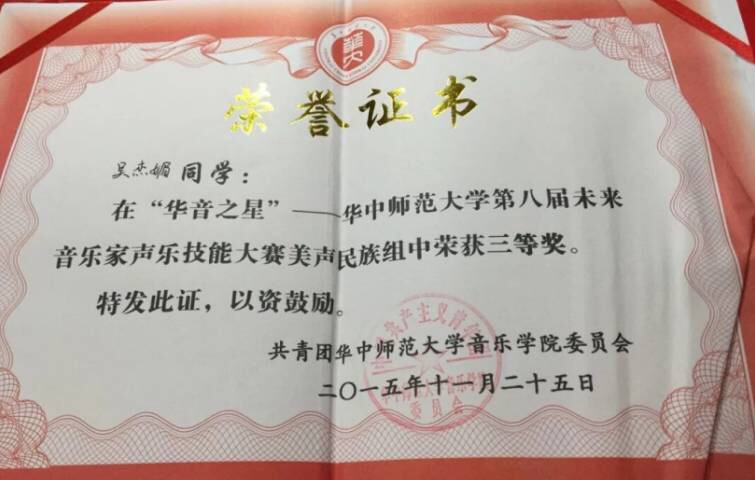 荣誉证书
吴杰媚同学：
在“华音之星”——华中师范大学第八届未来
音乐家声乐技能大赛美声民族组中荣获三等奖。
特发此证，以资鼓励。
共青团华中师范大学音乐学院委员会
二〇一五年十一月二十五日